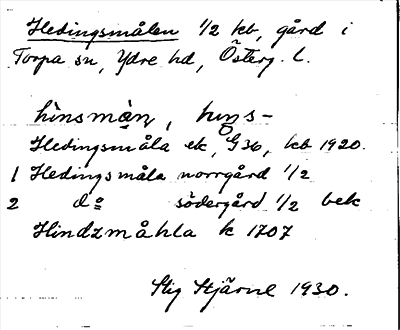 Hedingsmålen 1/2 kb, gård i
Torpa sn, Ydre hd, Österg. l.
hìnsmàn, hins-
Hedingsmåla ek, G36, kb 1920.
1 Hedingsmåla norrgård 1/2
2 do södergård 1/2 bek
Hindzmåhla k 1707
Stig Stjärne 1930.